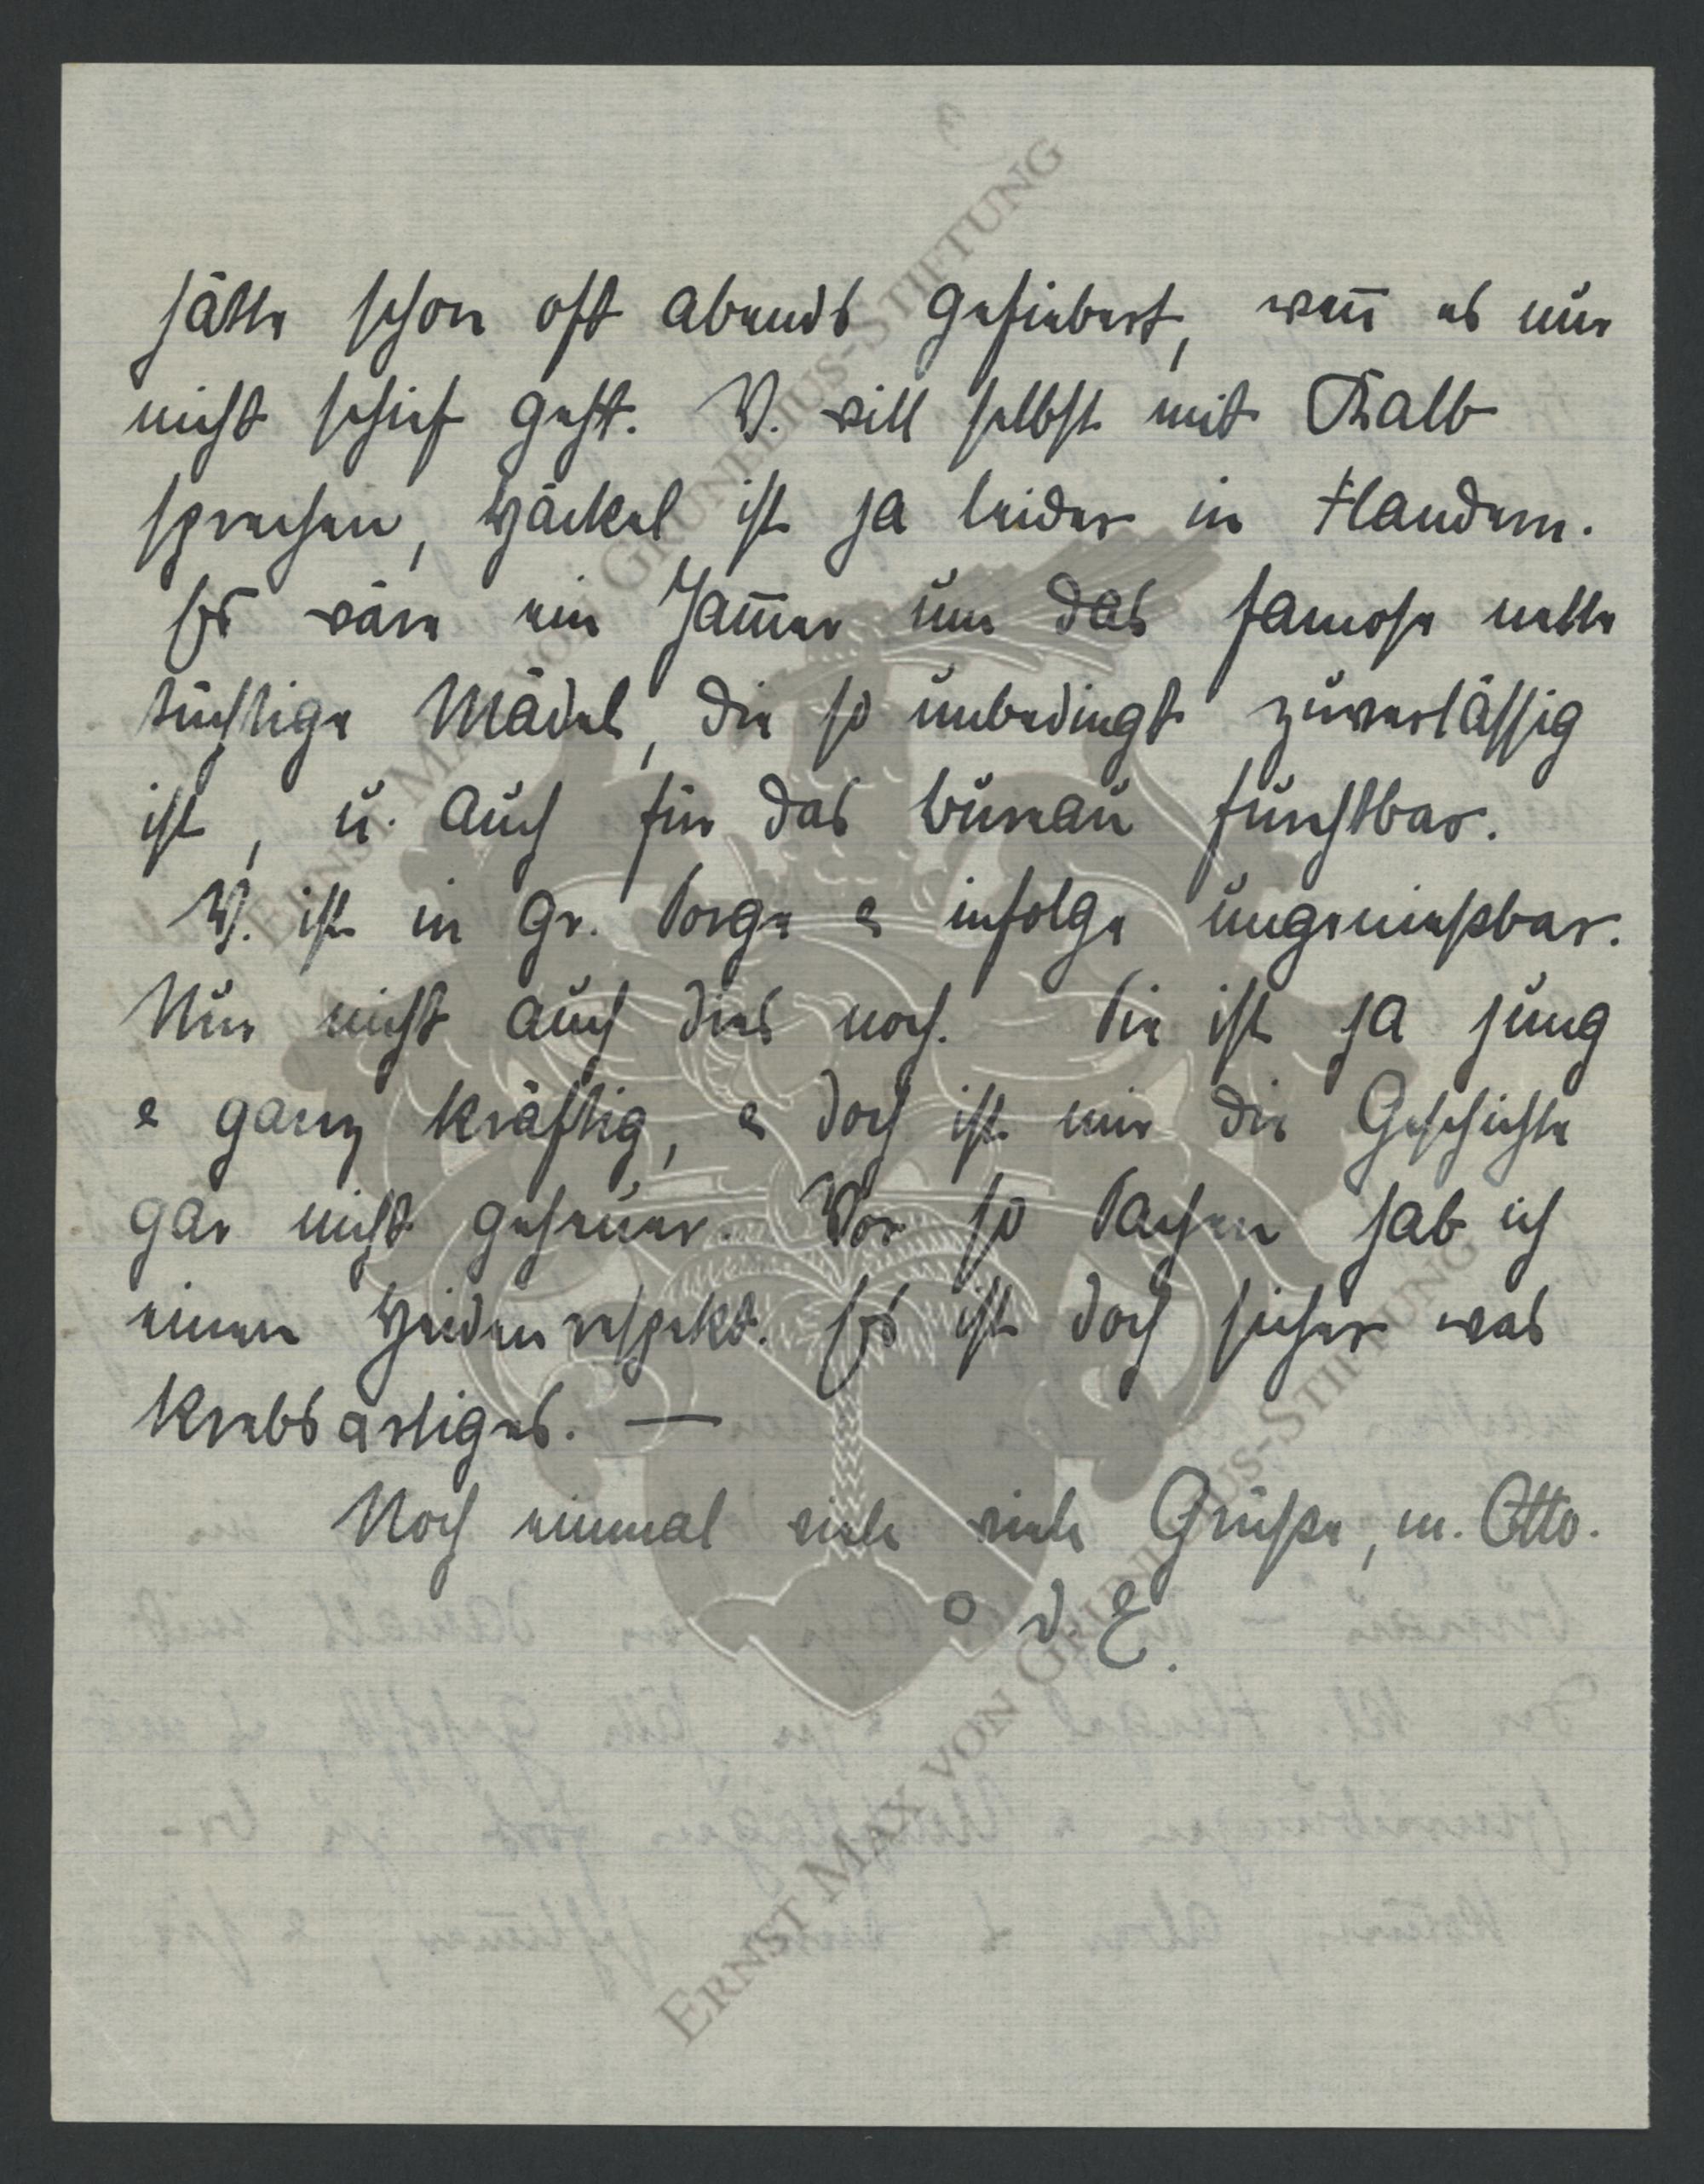 hätte schon oft abends gefiebert, wen̄ es nur
nicht schief geht. V. will selbst mit Kalb
sprechen, Häckel ist ja leider in Flandern.
Es wäre ein Jam̄er um das famose nette
tüchtige Mädel, die so unbedingt zuverlässig
ist, u. auch für das Bureau furchtbar.
V. ist in gr. Sorge & infolge ungeniessbar.
Nur nicht auch dies noch. Sie ist ja jung
& ganz kräftig, & doch ist mir die Geschichte
gar nicht geheuer. Vor so Sachen hab ich
einen Heidenrespekt. Es ist doch sicher was
Krebsartiges. —
Noch einmal viele viele Grüsse, m. Otto.
o d. E.
ERNST MAX VON GRUNELIUS-STIFTUNG
ERNST MAX VON GRUNELIUS-STIFTUNG